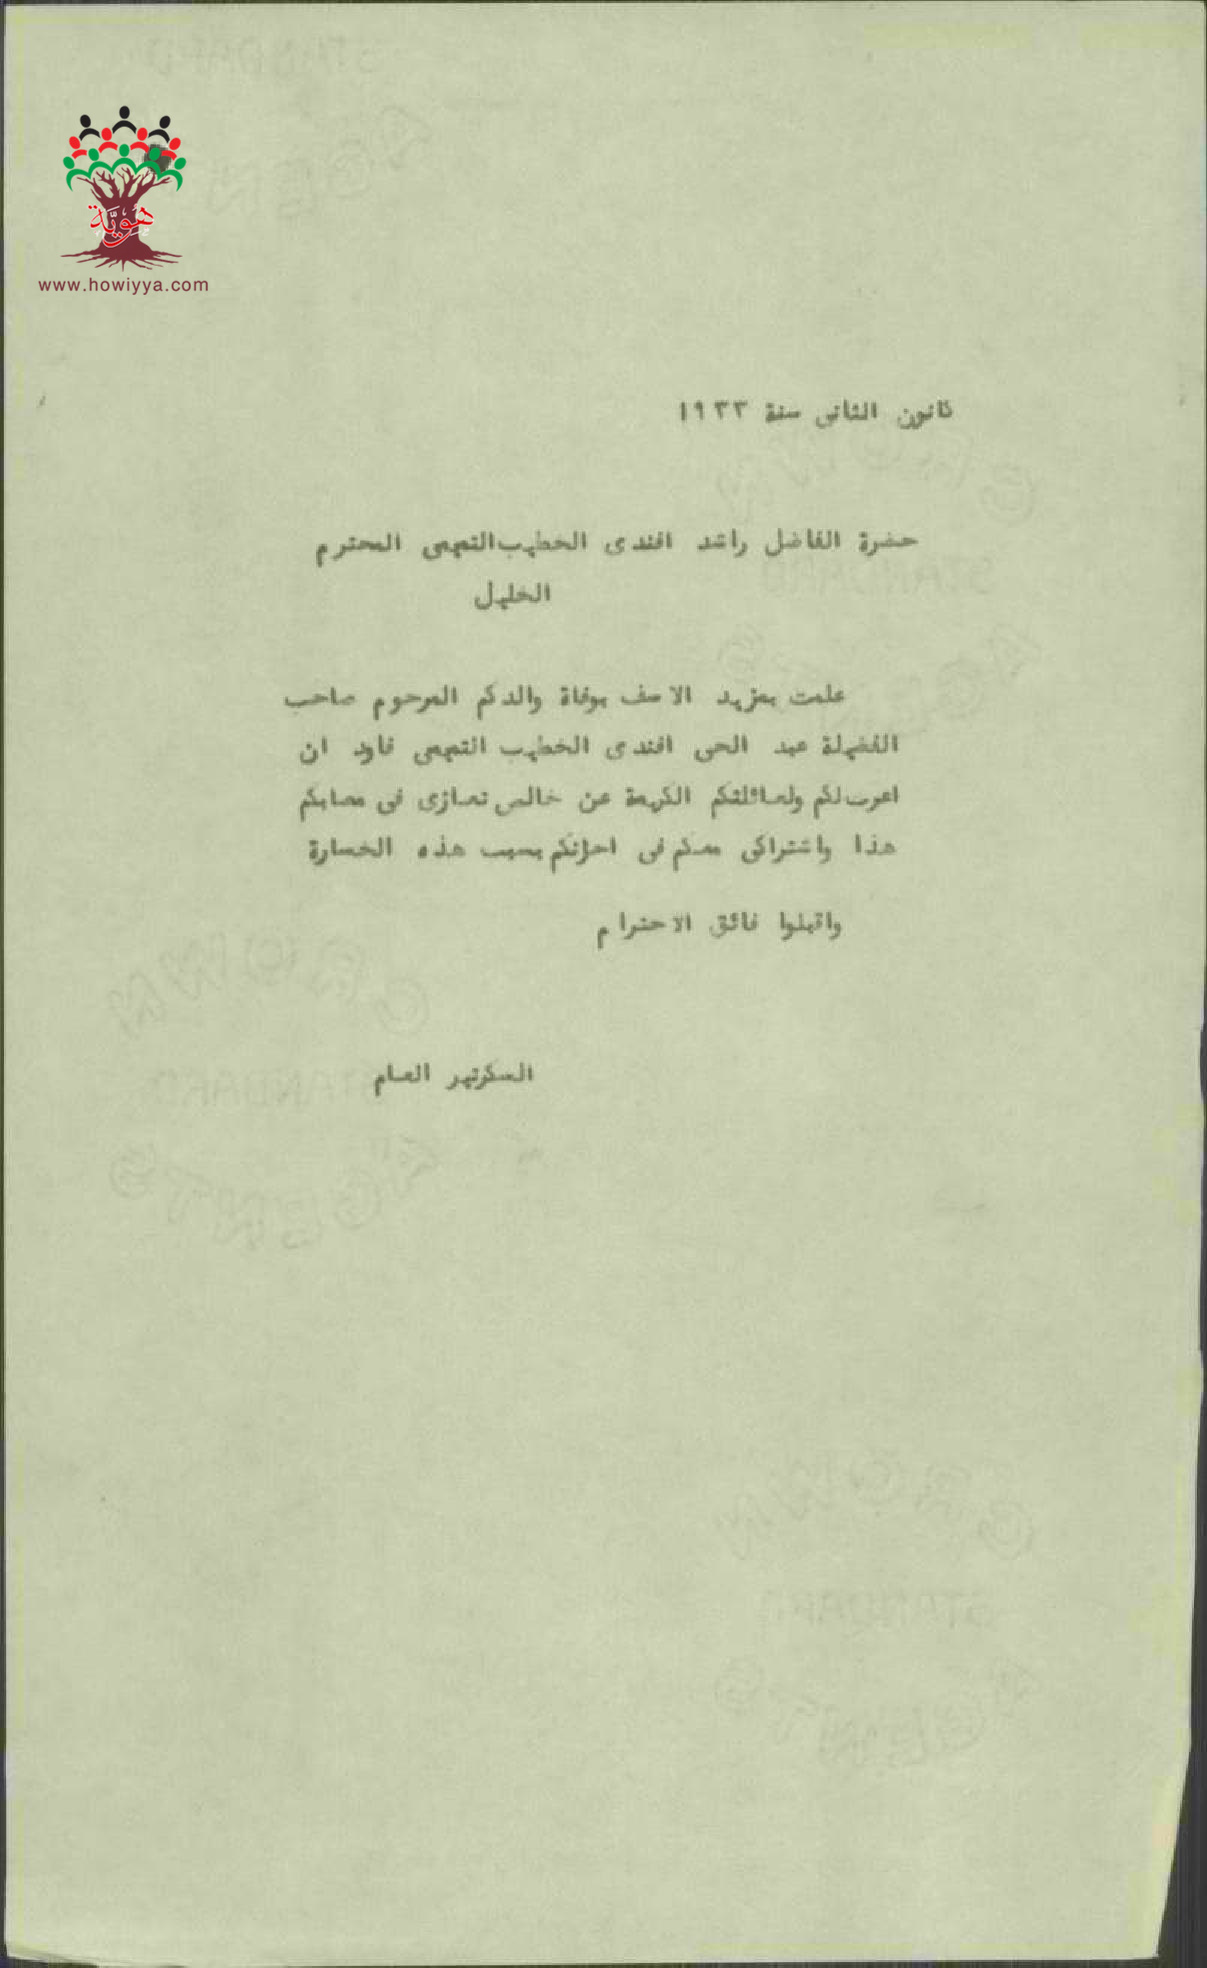 هوية
www.howiyya.com
كانون الثانى سنة ١٩٣٣
حضرة الفاضل راشد افندى الخطيب التميمى المحترم
الخليل
علمت بمزيد الاسف بوفاة والدكم المرحوم صاحب
الفضيلة عبد الحى افندى الخطيب التميمى فاود ان
اعرب لكم ولعائلتكم الكريمة عن خالص تعازى فى مصابكم
هذا واشتراكى معكم فى احزانكم بسبب هذه الخسارة
واقبلوا فائق الاحترام
السكرتير العام
CROWN
STANDARD
AGENTS